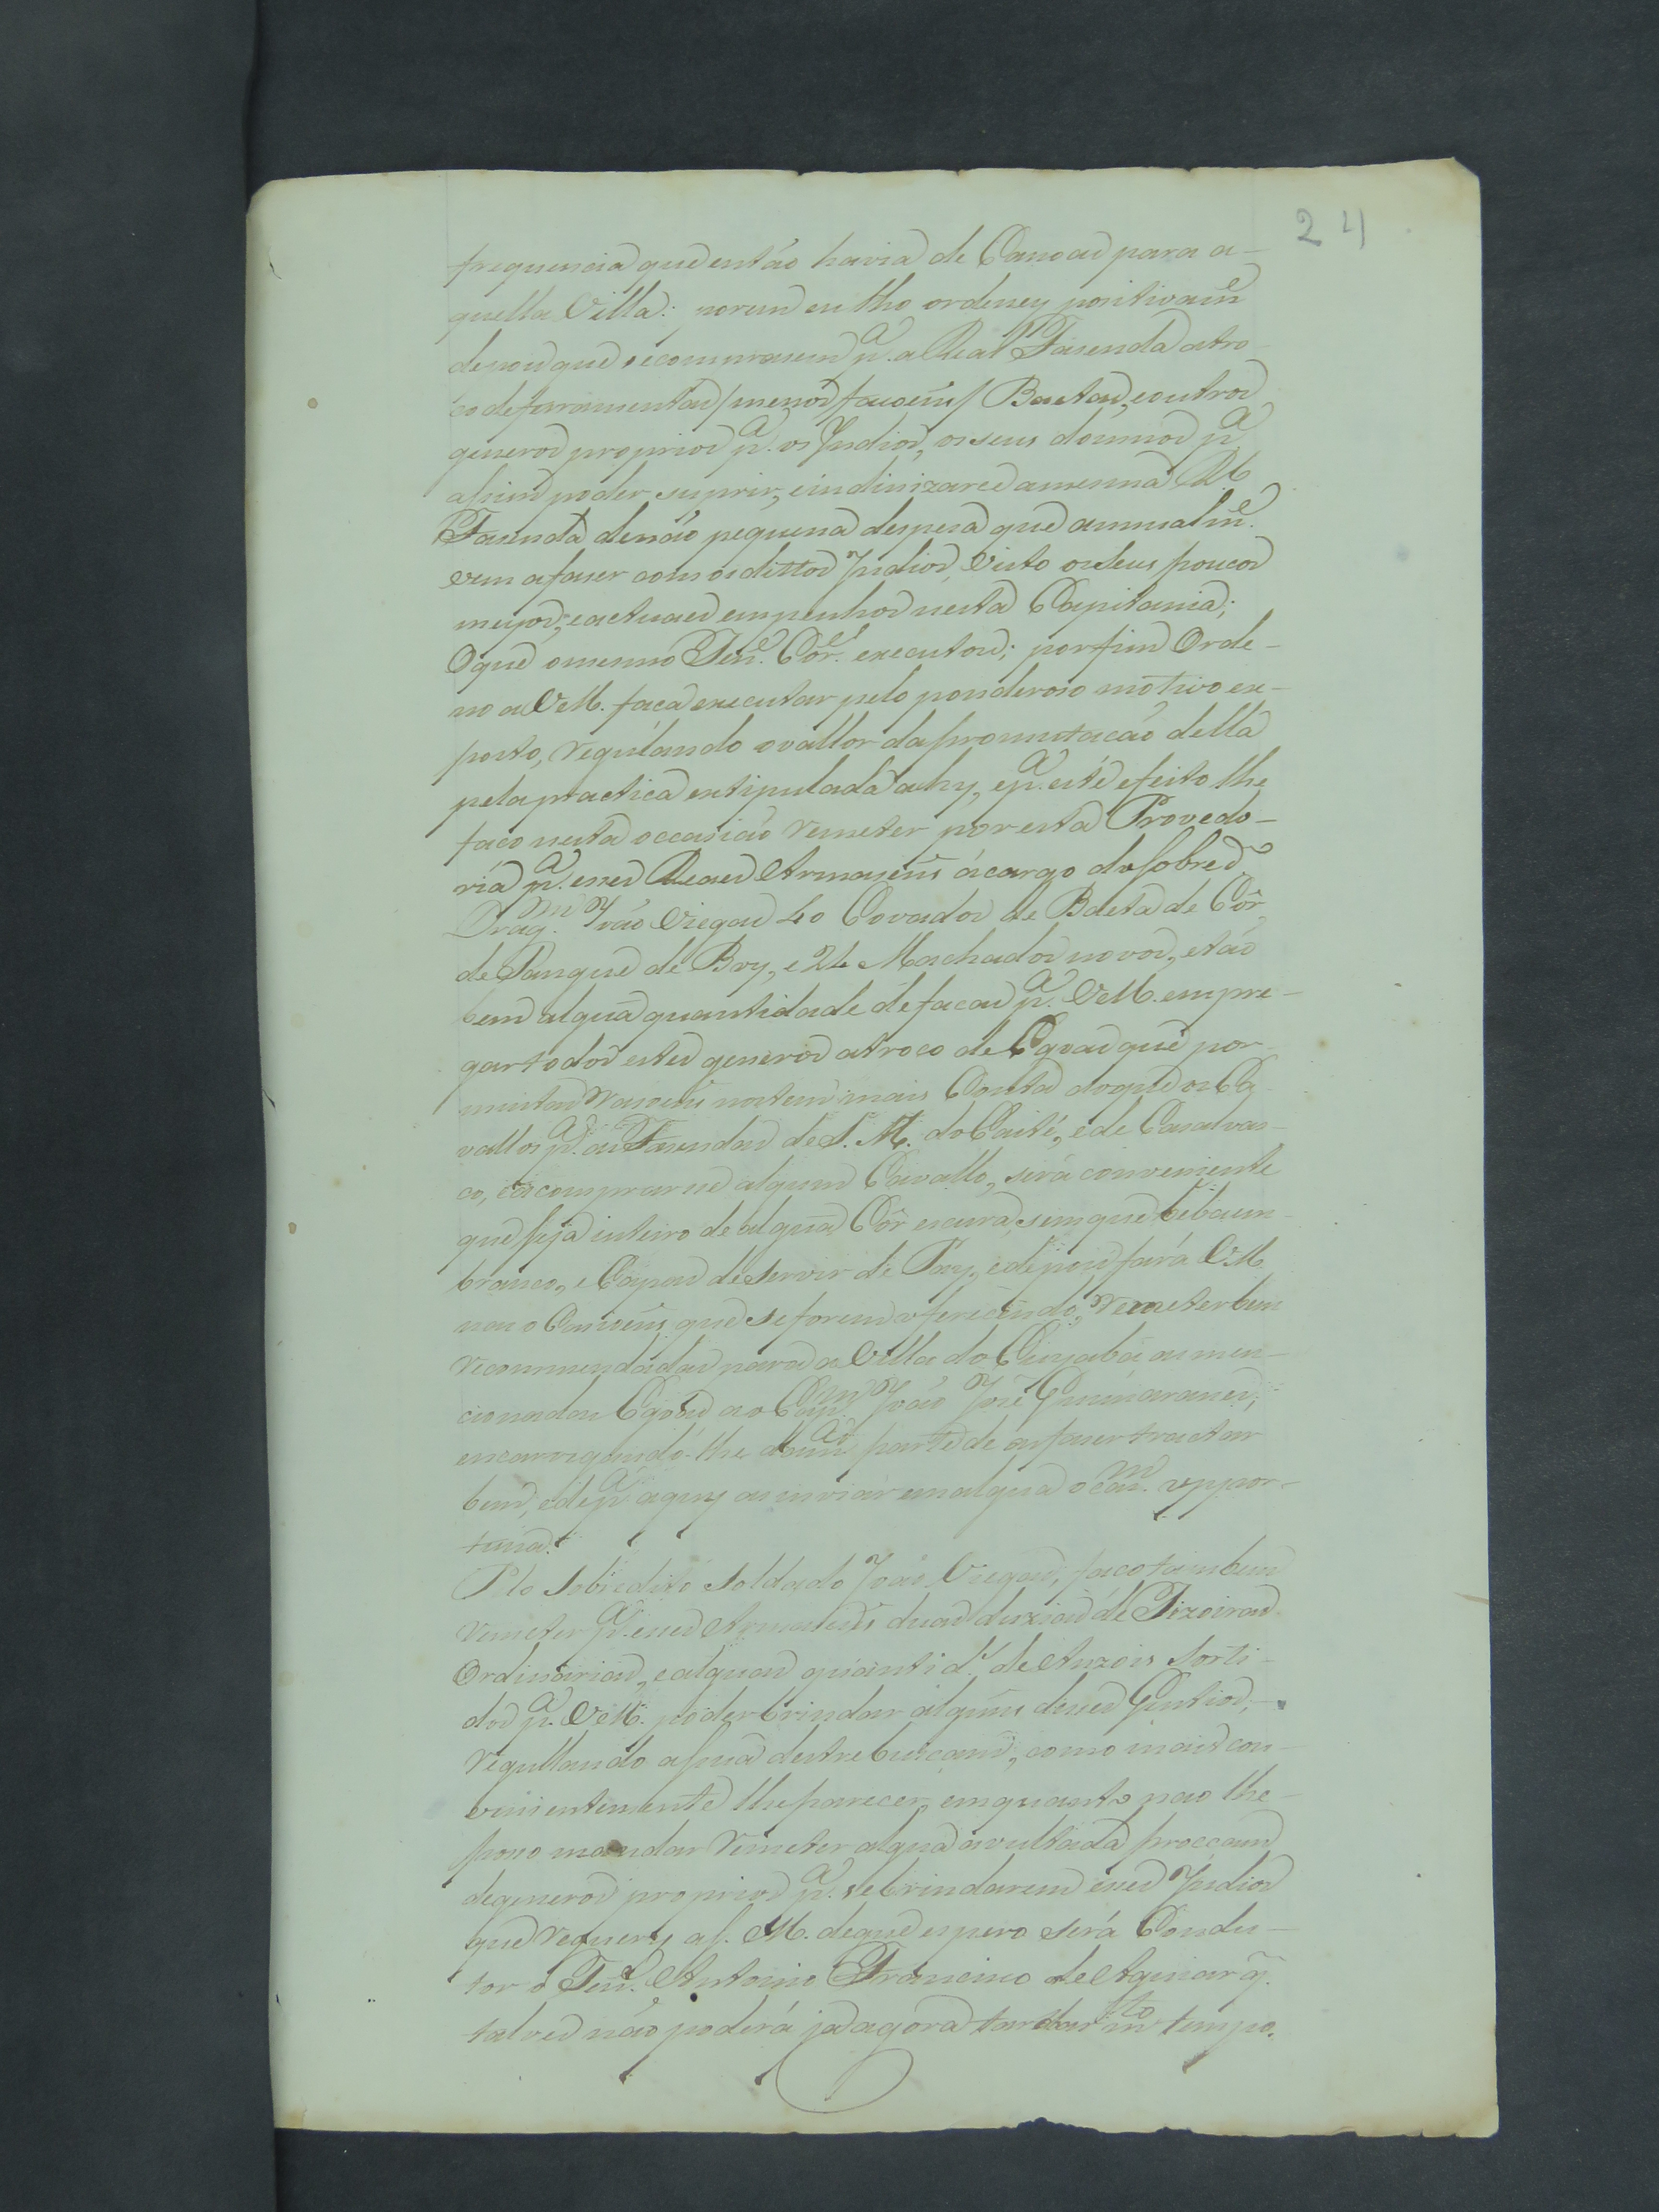 24
frequencia que então havia de Canoas para a-
quella Villa: porem eu lho ordeney positivam.e
depois que se comprasem p.a a Real Fasenda atro-
co de ferramentas / menos facoens / Baetas, e outros
generos proprios p.a os Indios, os seus dominos p.a
assim poder suprir, e indinizarce a mesma R.l
Fasenda de não pequena despesa que annualm.e
vem afaser com os dittos Indios, visto os seus poucos
meyos, e actuaes empenhos nesta Capitania;
O que o mesmo Ten.e Cor.el executou; por fim Orde-
no a VM. faça executar pelo ponderoso motivo ex-
posto, regulando o vallor da promutacão della
pela practica estipulada ahy, e p.a este efeito lhe
faco nesta occasião remeter por esta Provedo-
ria p.a esses Reaes Armasens ácargo do sobred.o
Drag.m João Viegas 40 Covados de Baeta de Côr
de Sangue de Boy, e 24 Machados novos, e tão
bem algua quantidade de facas p.a VM. empre-
gar todos estes generos atroco de Egoas que por
muitas rasoens nos tem mais Conta do que os Ca-
vallos p.a as Fasendas de S. M. do Caité, e de Casalvas-
co, e se comprarse algum Cavallo, será conveniente
que seja inteiro de algua Côr escura, sem que beba em
branco, e Capas de servir de Pay, e depois fará VM.
nas oCasioens que se forem oferecendo, remeter bem
recommendadas para a Villa do Cuyabá as men-
cionadas Egoas ao Cap.m João José Guimaraens;
encarregando-lhe da m.a parte de as faser tractar
bem, e de p.a aquy as inviar em algua ocas.m oppor-
tuna.
Plo sobredito soldado João Viegas, faco tambem
remeter p.a esses Armasens duas dusias de Tizoiras
Ordinarias, e alguas quantid.s de Anzois sorti-
dos p.a VM. poder brindar alguns desses Gentios,
regullando a sua destrebuicam, como mais con-
vinientemente lhe parecer, emquanto nao lhe
posso mandar remeter algua avultada proccam
de generos proprios p.a se brindarem esses Indios
que requery a S. M. de que espero será Condu-
tor o Ten.e Antonio Francisco de Aguiar q.
talves não poderá já agora tardar m.to tempo.